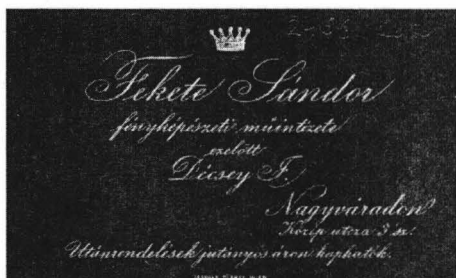 Fekete Sándor
fényképészeti müintézete
ezelött
Décsey F.
Nagyváradon
Közép utcza 3 sz.
Utánrendelések jutányos áron kaphatók.